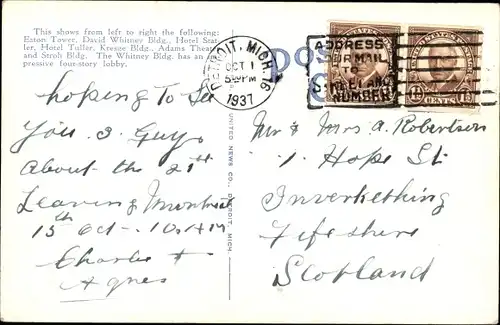 This shows from left to right the following:
Eaton Tower, David Whitney Bldg., Hotel Stat-
ler, Hotel Tuller, Kresge Bldg., Adams Theatre
and Stroh Bldg. The Whitney Bldg. has an im-
pressive four-story lobby.
DETROIT, MICH.
OCT 1
5 PM
1937
ADDRESS
YOUR MAIL
TO
STREET AND
NUMBER
CENTS
POS
UNITED NEWS CO., DETROIT, MICH.
hoping To See
You & Guys
About the 21st
Leaving Montreal
15th Oct - 10 AM
Charlie &
Agnes
Mr & Mrs A. Robertson
1. Hope St
Inverkething
Fifeshire
Scotland